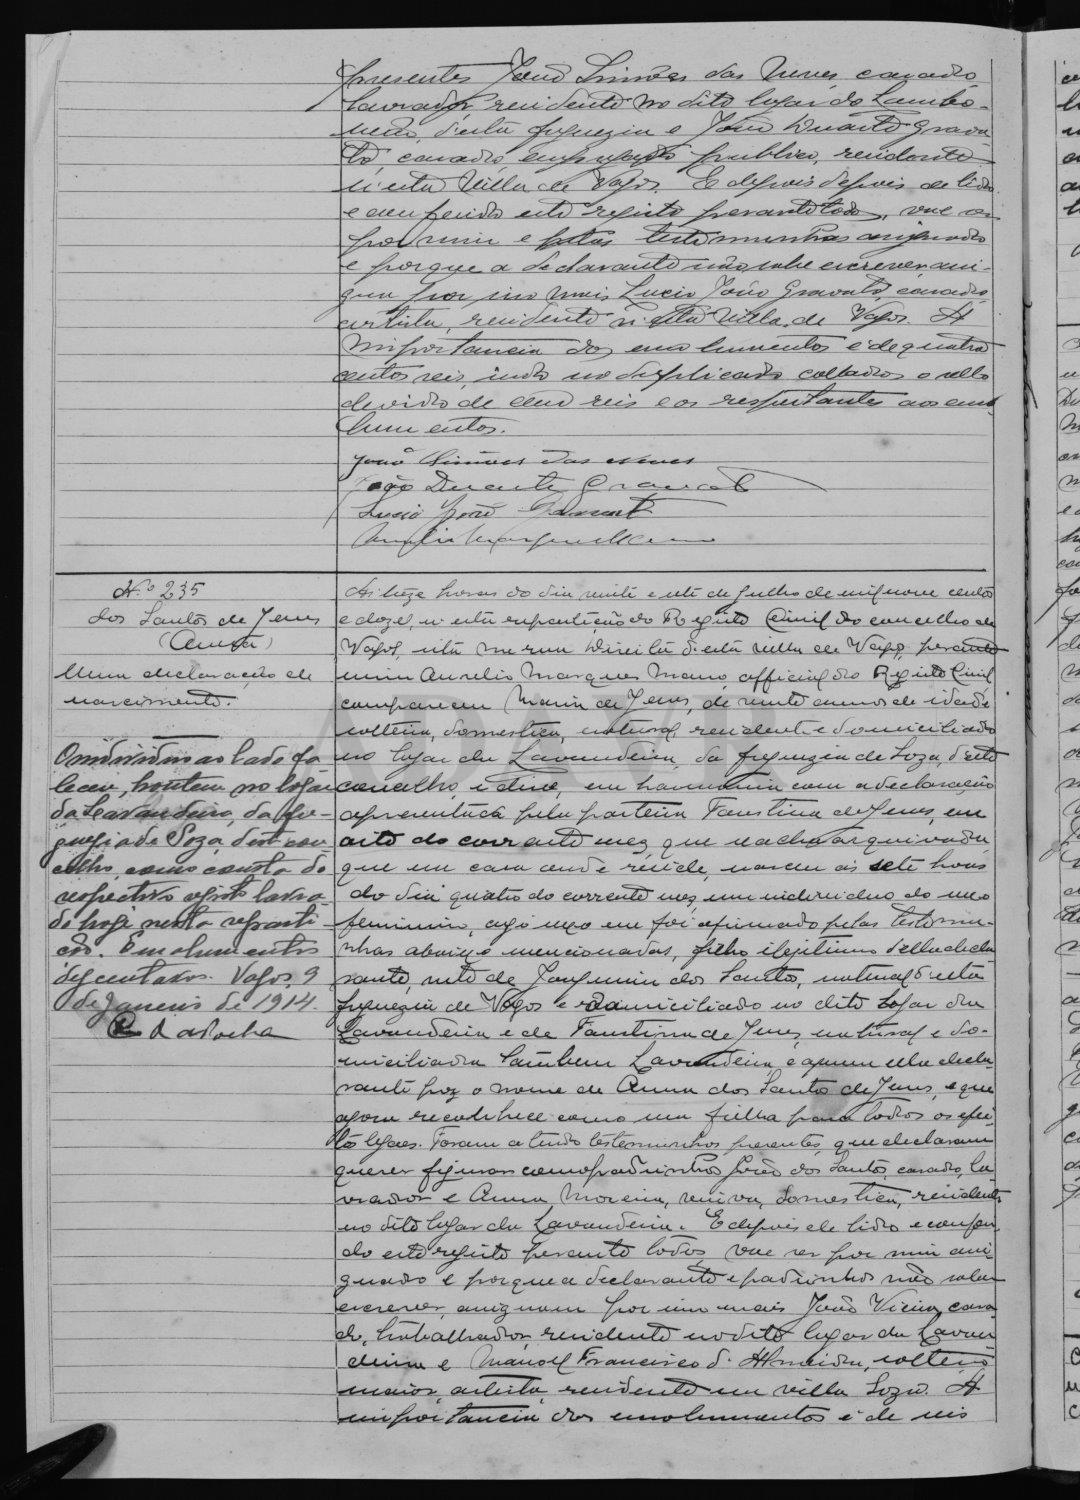 presentes João Simões das Neves casado
lavrador, residente no dito logar do
d'esta freguezia e João Duarte Grava
to, casado empregado publico, residente
n'esta Villa de Vagos. E depois depois de lido
e conferido este registo perante todos, vae ser
por mim e pelas testemunhas assignado
e porque a declarante não sabe escrever assi-
gna por isso mais Lucio João Gravato, casado
artista, residente n'esta Villa de Vagos. A
importancia dos emolumentos é de quatro
centos reis, indo no duplicado collados o sello
devido de cem reis e os respeitantes aos emo
lumentos.
João Simões das Neves
João Duarte Gravato
Lucio João Gravato
Aurelio Marques Mano
N.º 235
dos Santos de Jesus
(Anna)
Uma declaração de
nascimento.
O individuo ao lado fa
leceu, hontem no logar
da Lavandeira, da fre-
guezia de Soza, deste con
celho, como consta do
respectivo registo lavra-
do hoje nesta reparti
ção. Emolumentos
dez centavos. Vagos, 9
de Janeiro de 1914.
Rocha
Ás treze horas do dia vinte e sete de Julho de mil nove centos
e doze, n'esta repartição do Registo Civil do concelho de
Vagos, sita na rua Direita d'esta villa de Vagos, perante
mim Aurelio Marques Mano, official do Registo Civil
compareceu Maria de Jesus, de vinte annos de idade
solteira, domestica, natural, residente e domiciliada
no logar da Lavandeira, da freguezia de Soza, d'este
concelho, e disse, em harmonia com a declaração
apresentada pela parteira Faustina de Jesus, em
oito do corrente mez que se acha arquivada
que em casa onde reside, nasceu ás sete horas
do dia quatro do corrente mez, um individuo do sexo
feminino, cujo sexo me foi afirmado pelas testemu-
nhas abaixo mencionadas, filho ilegitimo d'ella decla
rante, neto de Joaquim dos Santos, natural d'esta
freguezia de Vagos e domiciliado no dito logar da
Lavandeira e de Faustina de Jesus, natural e do-
miciliada tambem Lavandeira, e a quem ella decla
rante poz o nome de Anna dos Santos de Jesus, e que
agora reconhece como sua filha para todos os efei
tos legaes. Foram a tudo testemunhas presentes, que declararam
querer figurar como padrinhos João dos Santos, casado, la
vrador e Anna Moreira, viuva, domestica, residentes
no dito logar da Lavandeira. E depois de lido e conferi
do este registo perante todos, vae ser por mim assi
gnado e porque a declarante e padrinhos não sabem
escrever, assignam por isso mais João Vieira, casa
do, trabalhador residente no dito logar da Lavan
deira e Manoel Francisco d'Almeida, solteiro
maior, artista, residente na villa Soza. A
importancia dos emolumentos é de seis